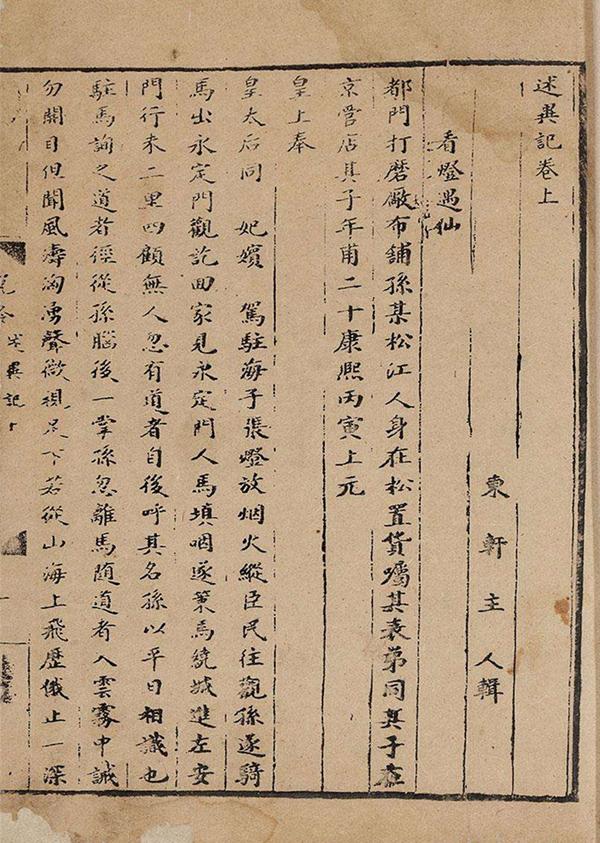 述異記卷上
東軒主人輯
看燈遇仙
都門打磨廠布鋪孫某松江人身在松置貨囑其表弟同其子在
京營店其子年甫二十康熙丙寅上元
皇上奉
皇太后同 妃嬪 駕駐海子張燈放烟火縱臣民往觀孫遂騎
馬出永定門觀訖回家見永定門人馬填咽遂策馬繞城進左安
門行未二里四顧無人忽有道者自後呼其名孫以平日相識也
駐馬詢之道者徑從孫腦後一掌孫忽離馬随道者入雲霧中誡
勿開目但聞風濤洶湧聲微視足下若從山海上飛歷俄止一深
述異記